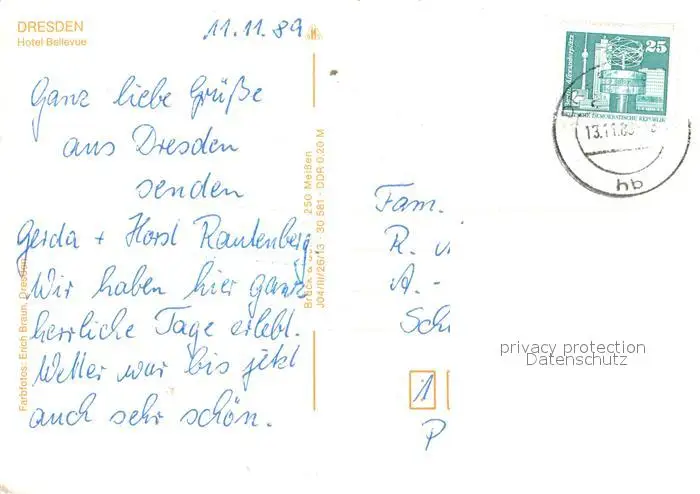 DRESDEN
Hotel Bellevue
11.11.89
Ganz liebe Grüße
aus Dresden
senden
Gerda + Horst Rautenberg
Wir haben hier ganz
herrliche Tage erlebt.
Wetter war bis jetzt
auch sehr schön.
Farbfotos: Erich Braun, Dresden
250 Meißen
J04/III/26/13 30 581 DDR 0,20 M
25
DEMOKRATISCHE REPUBLIK
13.11.89
hb
Fam.
R.
A. -
Sch
1
P
privacy protection
Datenschutz